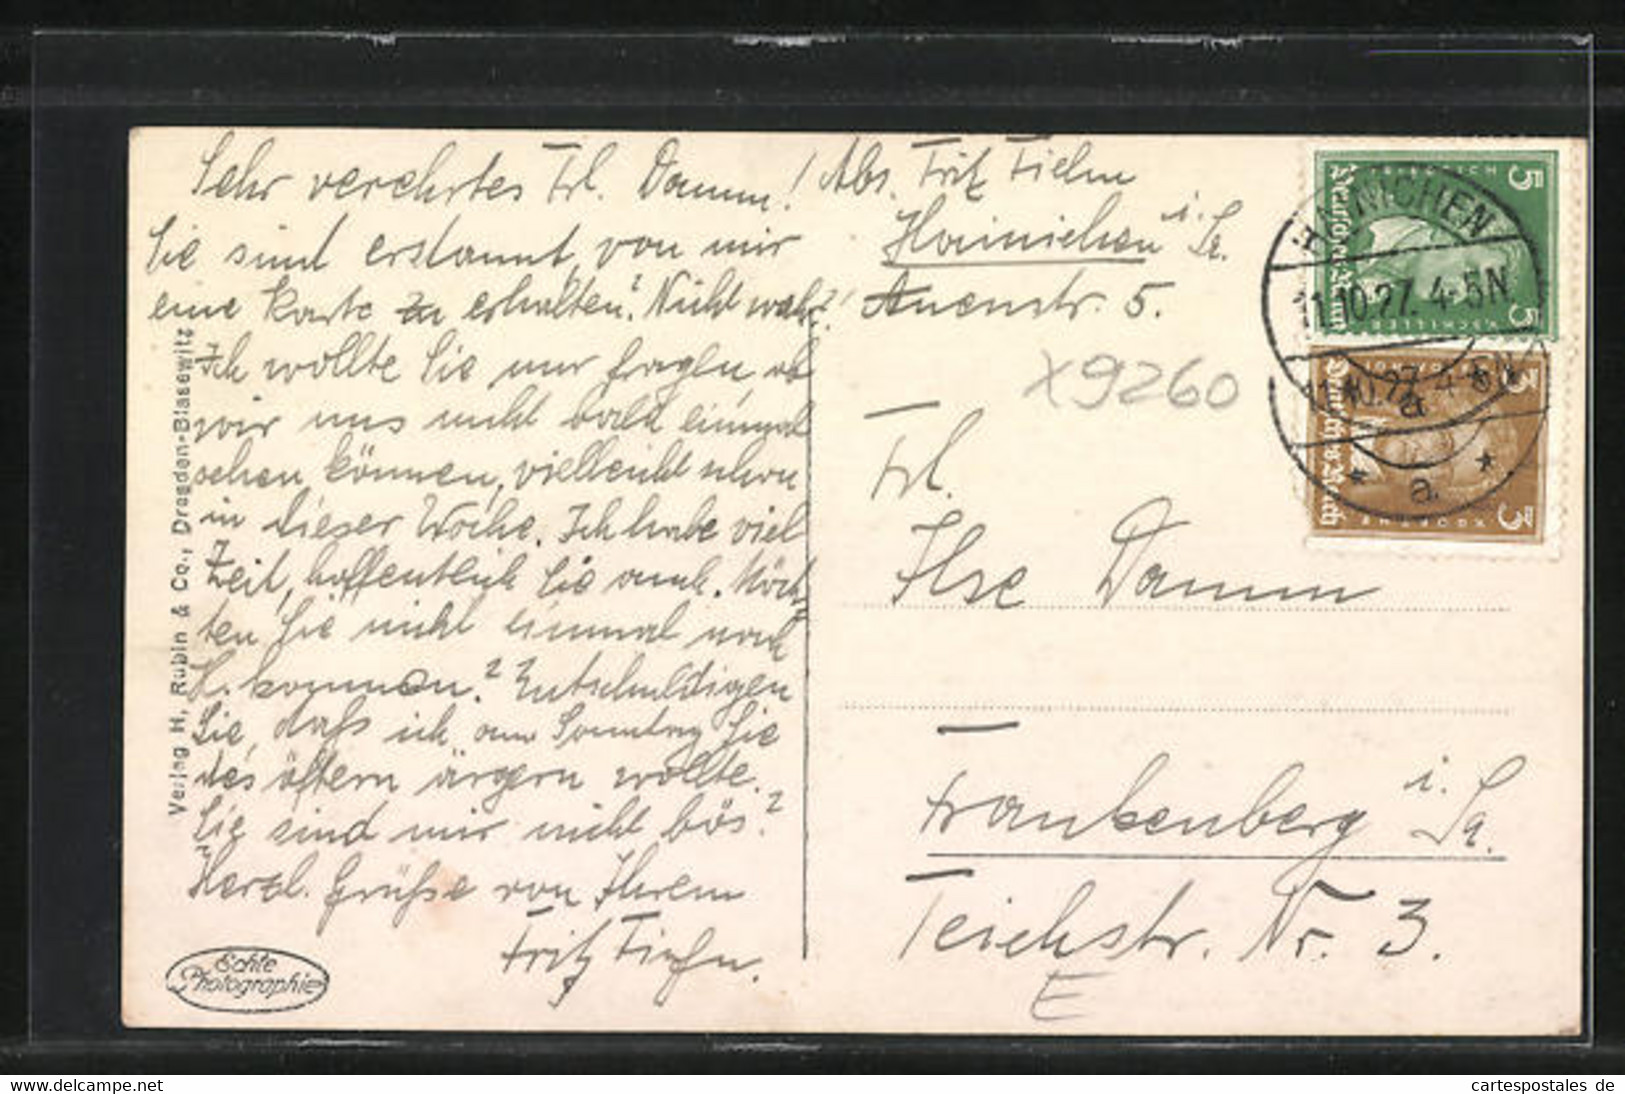 Sehr verehrtes Frl. Damm!
Sie sind erstaunt, von mir
eine Karte zu erhalten? Nicht wahr?!
Ich wollte Sie nur fragen, ob
wir uns nicht bald einmal
sehen können, vielleicht schon
in dieser Woche. Ich habe viel
Zeit, hoffentlich Sie auch. Möch-
ten Sie nicht einmal nach
H. kommen? Entschuldigen
Sie, daß ich am Sonntag Sie
des öftern ärgern wollte.
Sie sind mir nicht bös?
Herzl. Grüße von Ihrem
Fritz
Abs. Fritz
Hainichen i. Sa.
Auenstr. 5.
X9260
Frl.
Ilse Damm
Frankenberg i. Sa.
Teichstr. Nr. 3.
E
Verlag H. Rubin & Co., Dresden-Blasewitz
Echte
Photographie
HAINICHEN
11.10.27. 4-5N
a
11.10.27. 4-5N
* a. *
5 Deutsches Reich 5
F.v. SCHILLER
3 Deutsches Reich 3
cartespostales de
www.delcampe.net